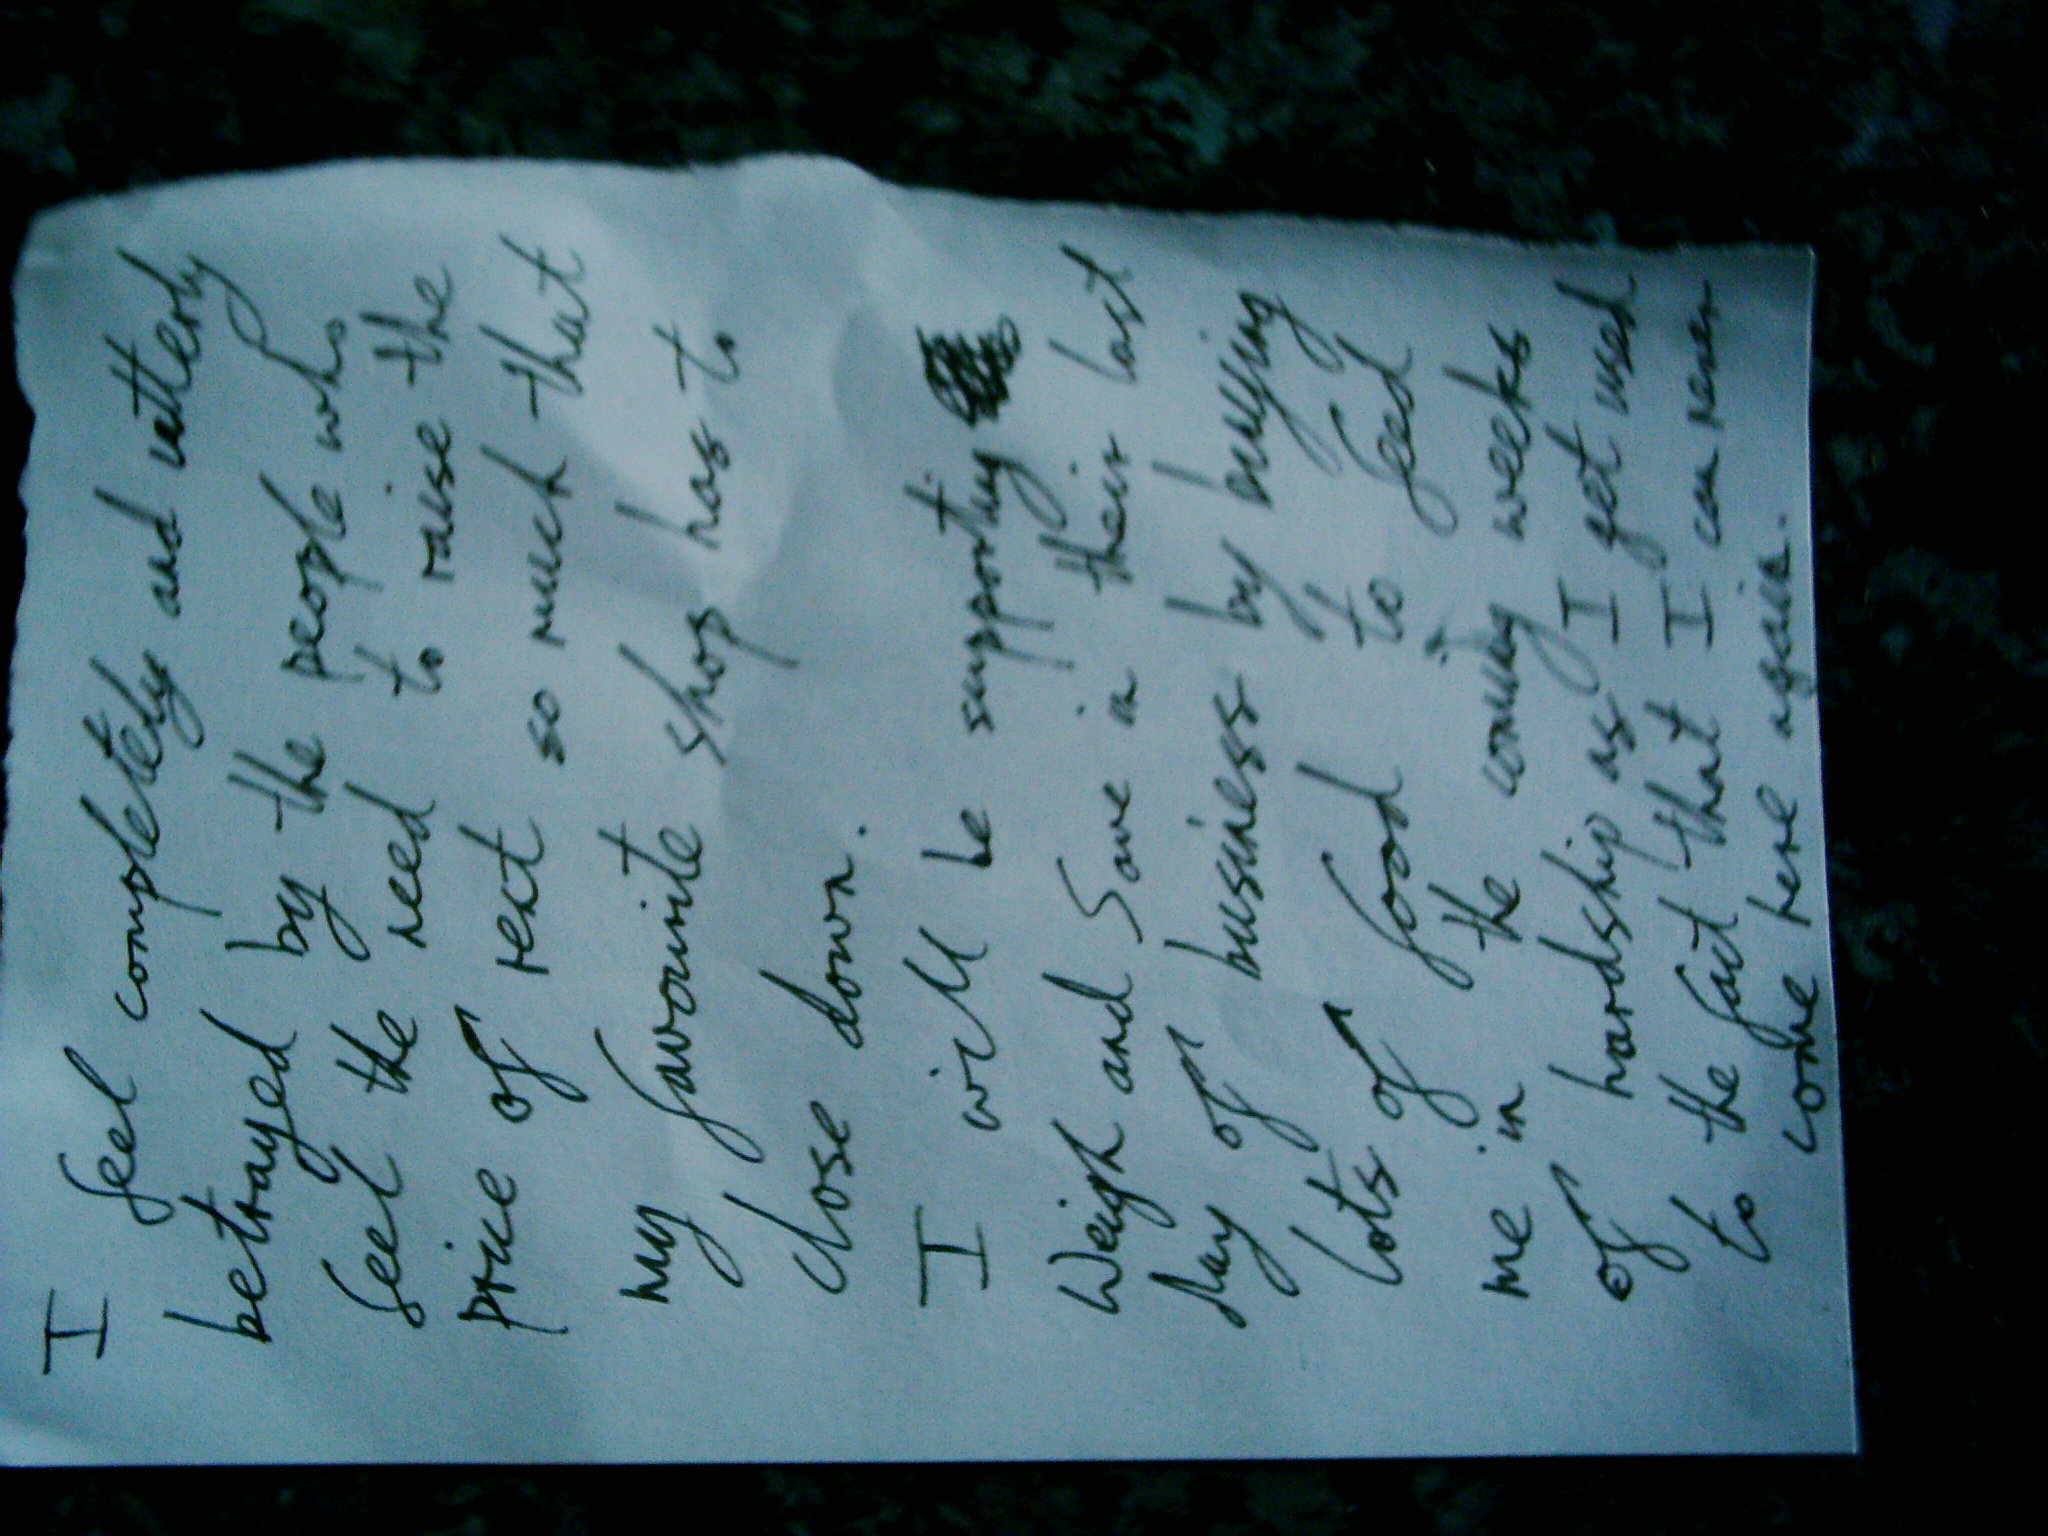 I feel completely and utterly
betrayed by the people who
feel the need to raise the
price of rent so much that
my favourite shop has to
close down.
I will be supporting
Weigh and Save in their last
day of business by buying
lots of food to feed
me in the coming weeks
of hardship as I get used
to the fact that I can never
come here again.